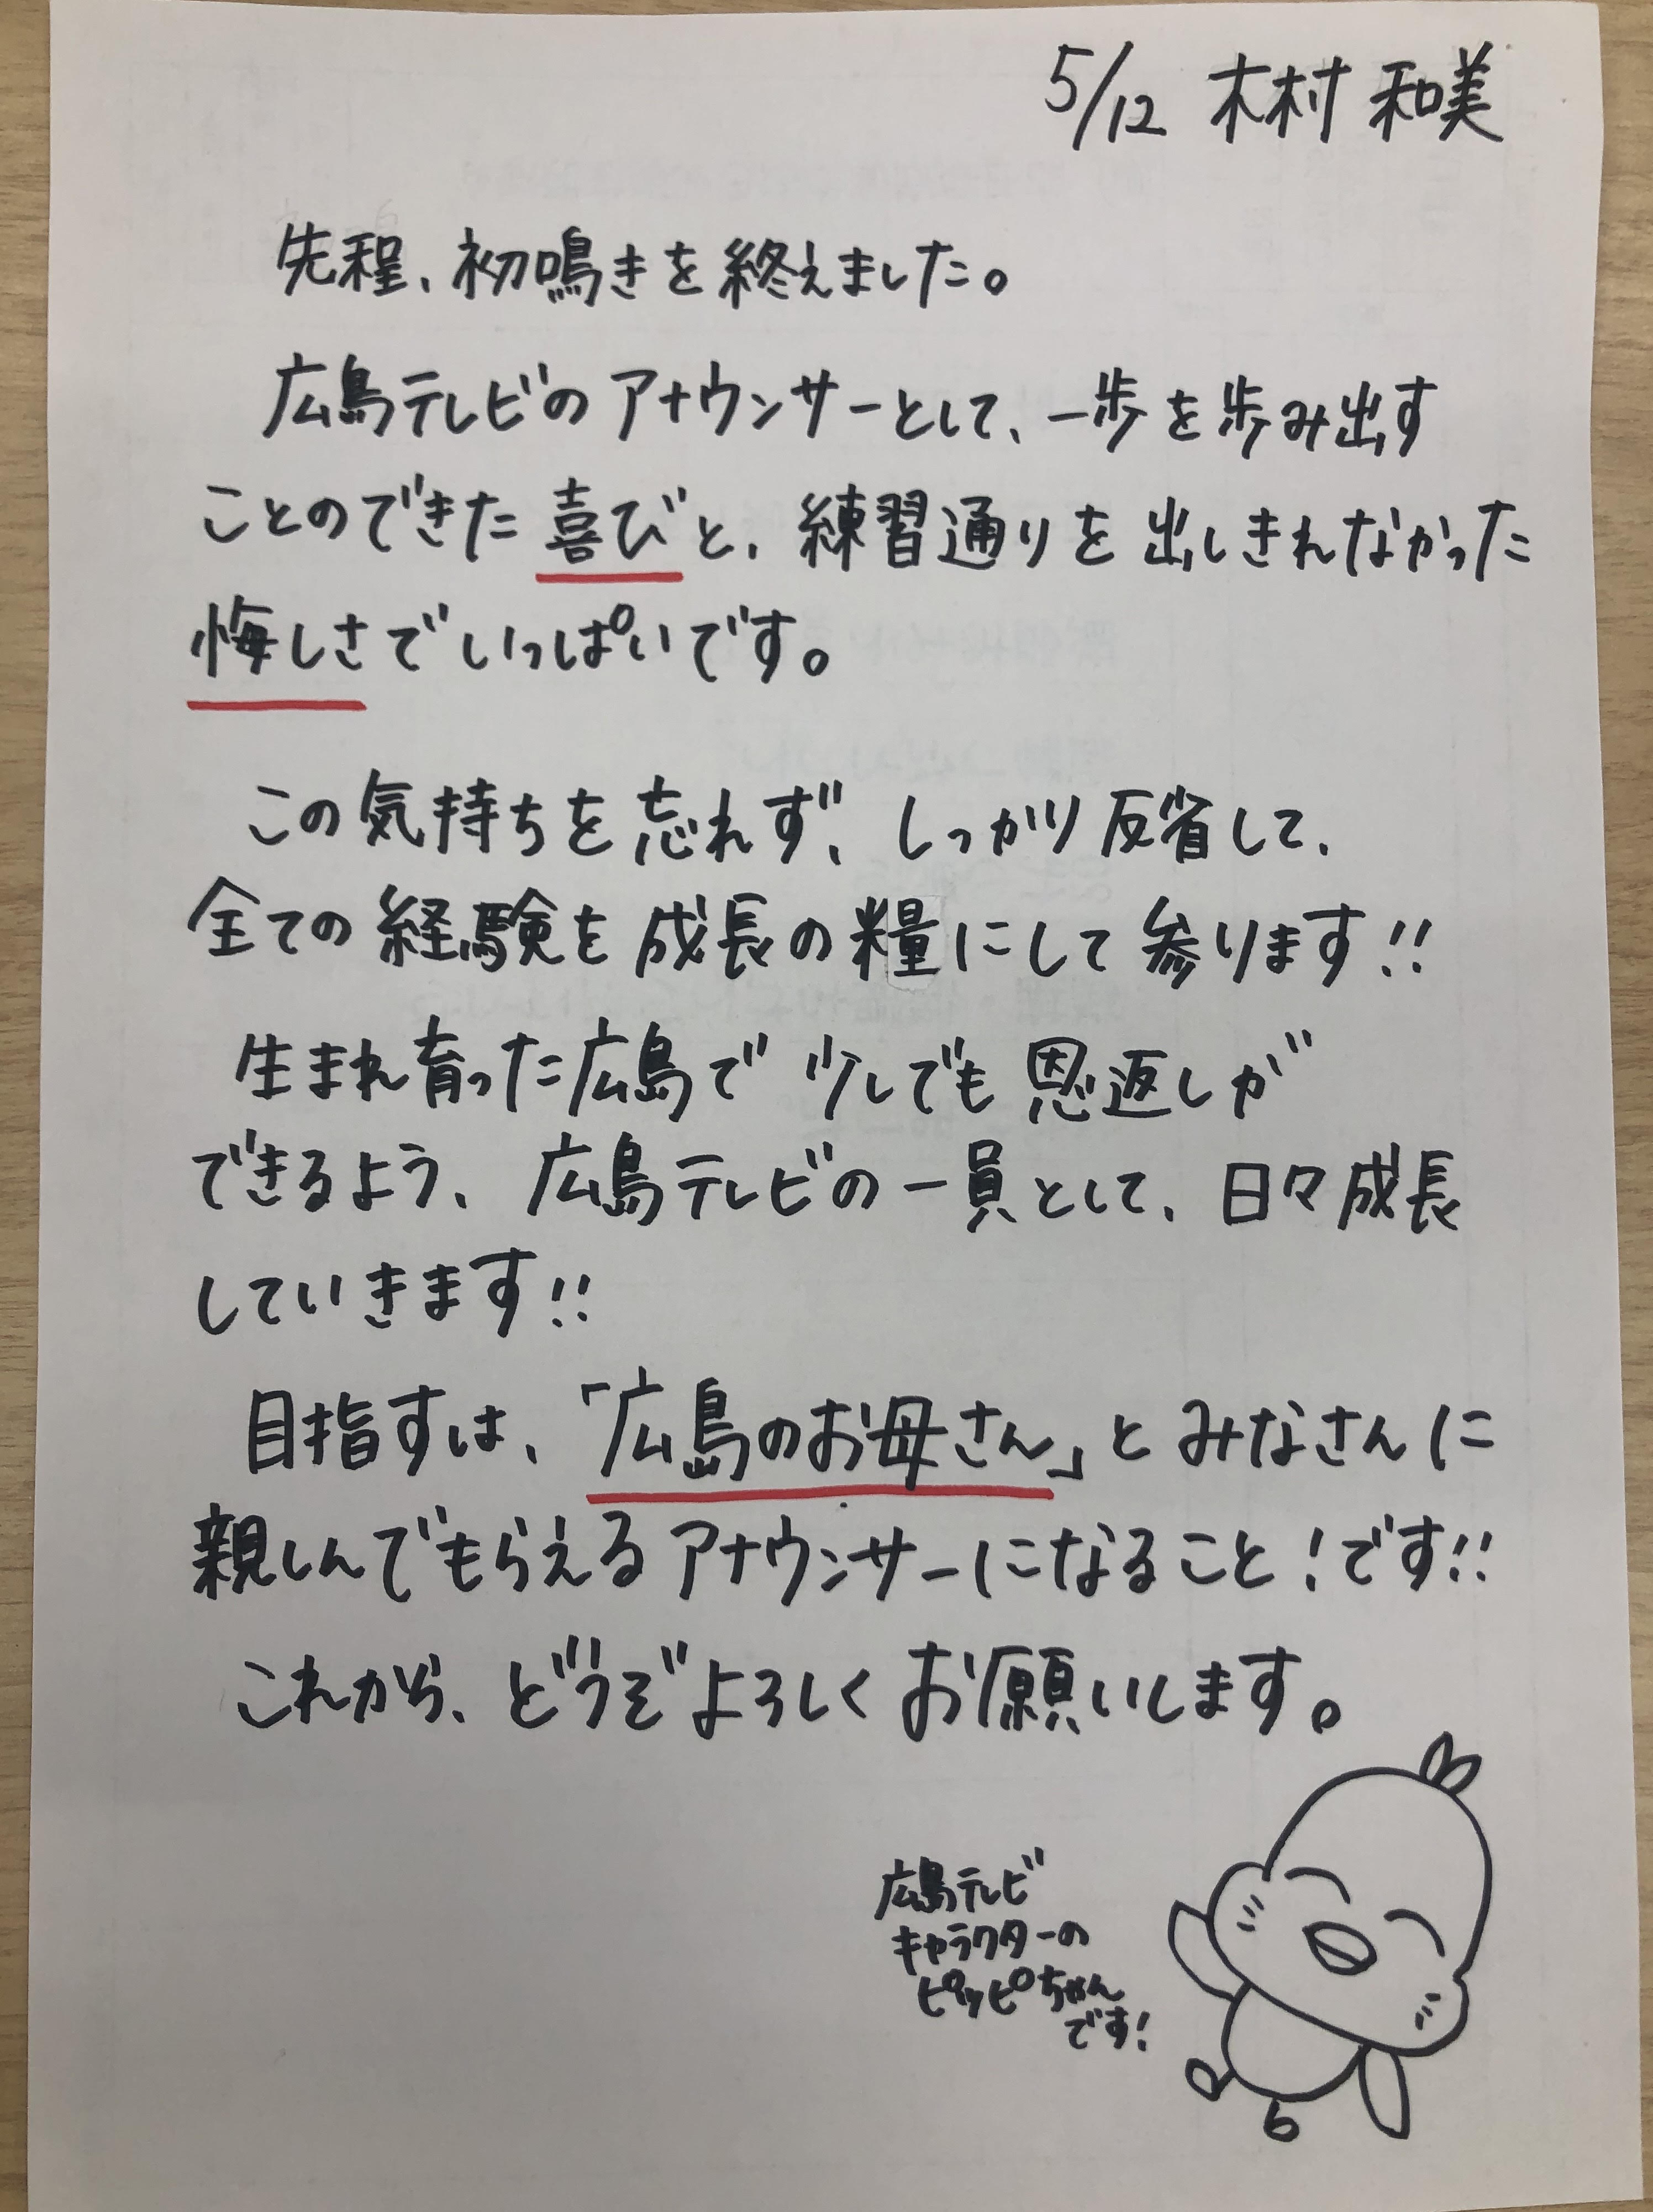 5/12 木村 和美
先程、初鳴きを終えました。
広島テレビのアナウンサーとして、一歩を歩み出す
ことのできた喜びと、練習通りを出しきれなかった
悔しさでいっぱいです。
この気持ちを忘れず、しっかり反省して、
全ての経験を成長の糧にして参ります!!
生まれ育った広島で少しでも恩返しが
できるよう、広島テレビの一員として、日々成長
していきます!!
目指すは、「広島のお母さん」とみなさんに
親しんでもらえるアナウンサーになること!です!!
これから、どうぞよろしくお願いします。
広島テレビ
キャラクターの
ピッピちゃん
です!